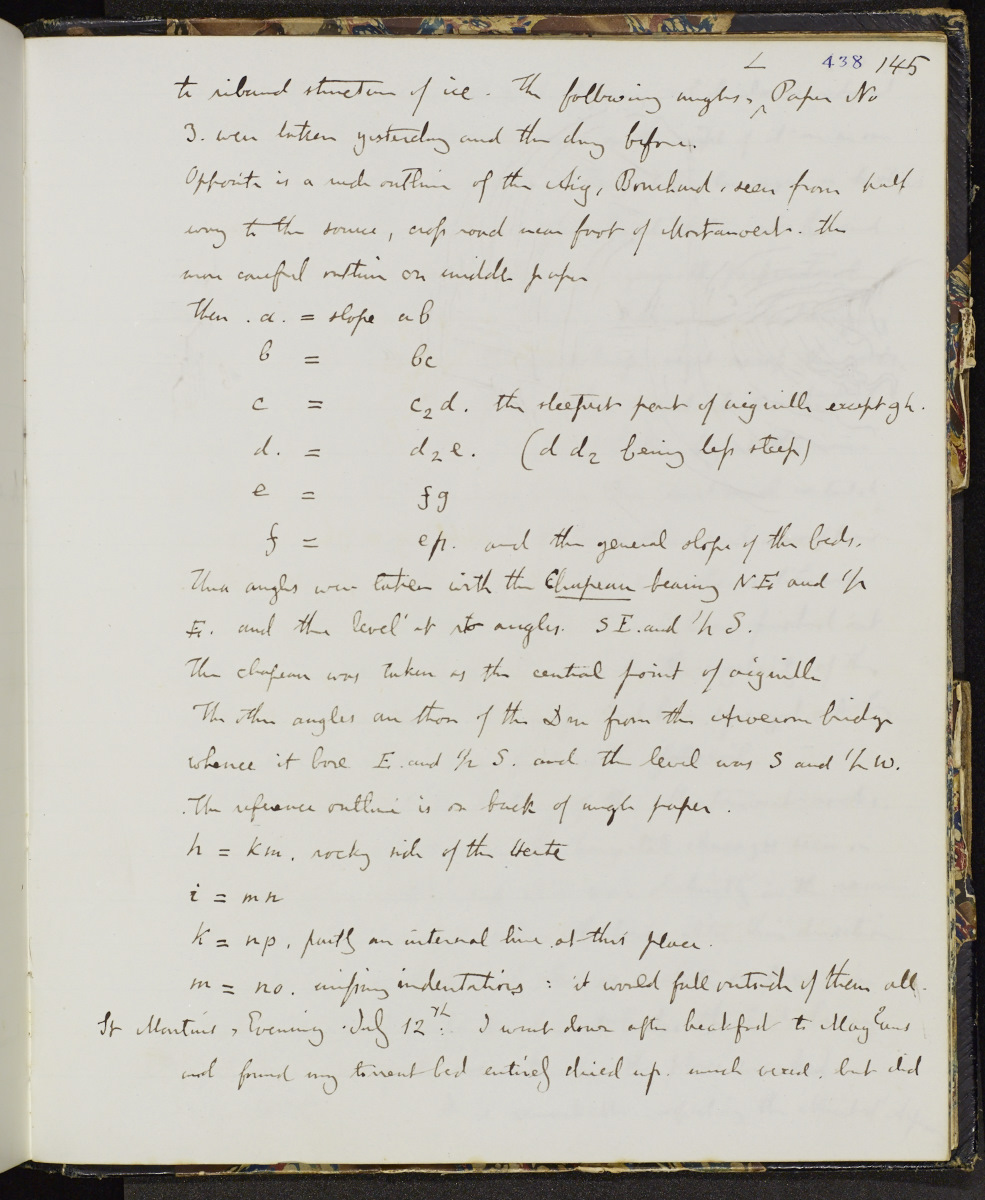 L 438 145
to riband structure of ice. The following angles, ^ Paper No
3. were taken yesterday and the day before.
Opposite is a rude outline of the Aig, Bouchard, seen from half
way to the source, cross road near foot of Montanvert. the
more careful outline on middle paper
Then . a. = slope ab
b = bc
c = c2d. the steepest part of aiguille except gh.
d. = d2e. (d d2 being less steep)
e = fg
f = ep. and the general slope of the beds.
These angles were taken with the Chapeau bearing NE and 1/2
E. and the level at rt angles. SE. and 1/2 S.
The chapeau was taken as the central point of aiguille
The other angles are those of the Dru from the Arveron bridge
whence it bore E. and 1/2 S. and the level was S and 1/2 W.
The reference outline is on back of angle paper.
h = km. rocky side of the Verte
i = mn
k = np, partly an internal line at this place.
m = no. missing indentations : it would fall outside of them all.
St Martins, Evening. July 12th. I went down after breakfast to Maglans
and found my torrent bed entirely dried up. much vexed. but did